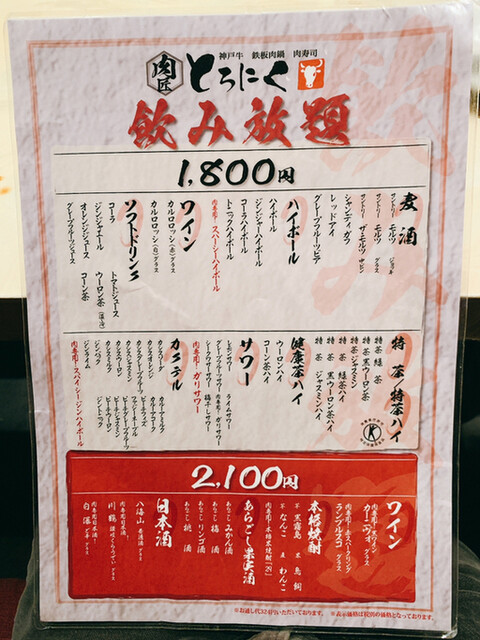 神戸牛 鉄板肉鍋 肉寿司
肉匠 とろにく
飲み放題
1,800円
麦酒
サントリー モルツ ジョッキ
サントリー モルツ グラス
サントリー ザ・モルツ 中ビン
シャンディガフ
レッドアイ
グレープフルーツビア
ハイボール
ハイボール
ジンジャーハイボール
コーラハイボール
トニックハイボール
肉寿司! スペーシーハイボール
ワイン
カルロロッシ(赤) グラス
カルロロッシ(白) グラス
ソフトドリンク
コーラ
ジンジャエール
オレンジジュース
グレープフルーツジュース
トマトジュース
ウーロン茶
コーン茶
特茶/特茶ハイ
特茶 緑茶
特茶 黒ウーロン茶
特茶 ジャスミン
特茶 緑茶ハイ
特茶 黒ウーロン茶ハイ
特茶 ジャスミンハイ
健康茶ハイ
ウーロンハイ
コーン茶ハイ
サワー
レモンサワー
グレープフルーツサワー
シークワサーサワー
ライムサワー
肉寿司! ガリサワー
梅干しサワー
カクテル
カシスソーダ
カシスオレンジ
カシスグレープフルーツ
カシスウーロン
カシスジャスミン
ジンバック
ジンライム
カルーアミルク
カルーアコーク
ピーチグレープフルーツ
ファジーネーブル
ピーチフィズ
ピーチウーロン
ピーチジャスミン
ジントニック
肉寿司! スペイシージンハイボール
2,100円
ワイン
肉寿司! 黒ワイン
カーニヴォ グラス
肉寿司! 赤スパークリング
ランブルスコ グラス
本格焼酎
芋 黒霧島
芋 なんこ
米 鳥飼
麦 わんこ
肉寿司! 本格黒焼酎「29」
あらごし果実酒
あらごし みかん酒
あらごし 梅酒
あらごし リンゴ酒
あらごし 桃酒
日本酒
八海山 普通酒 グラス
肉寿司日本酒!
川鶴 讃岐くらうでぃ グラス
肉寿司日本酒!
※お通し代324円いただいております。 ※表示価格は税別の価格となっております。